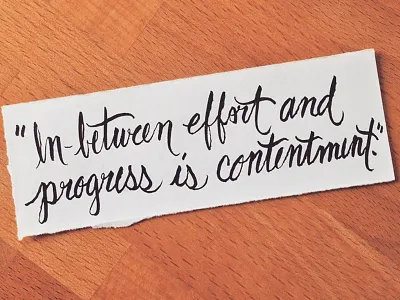 "In-between effort and
progress is contentment."